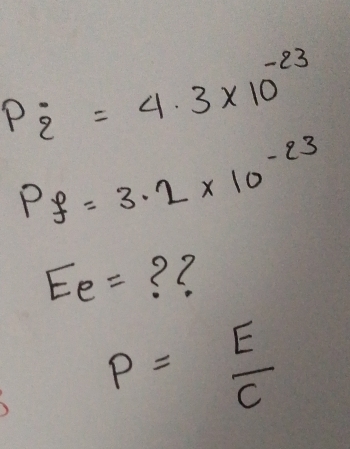 Pi = 4.3 × 10⁻²³
Pf = 3.2 × 10⁻²³
Ee = ??
P = E/C